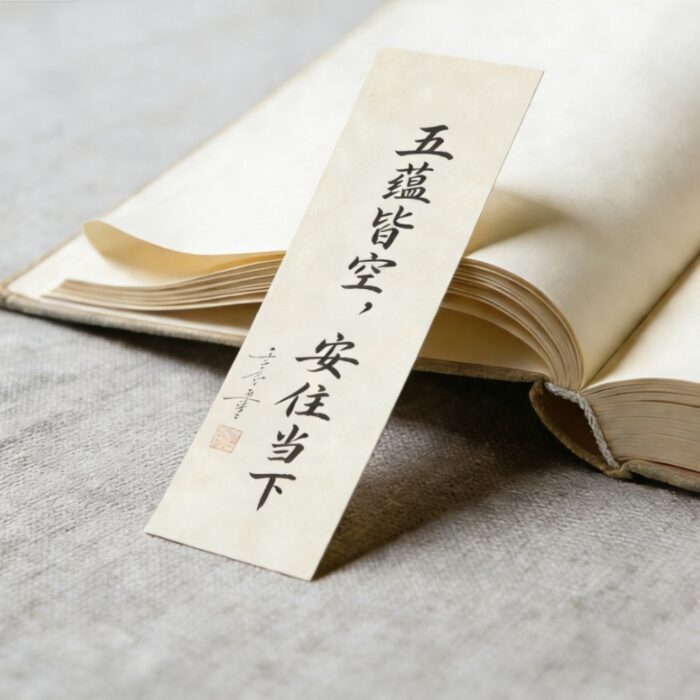 五蕴皆空，安住当下